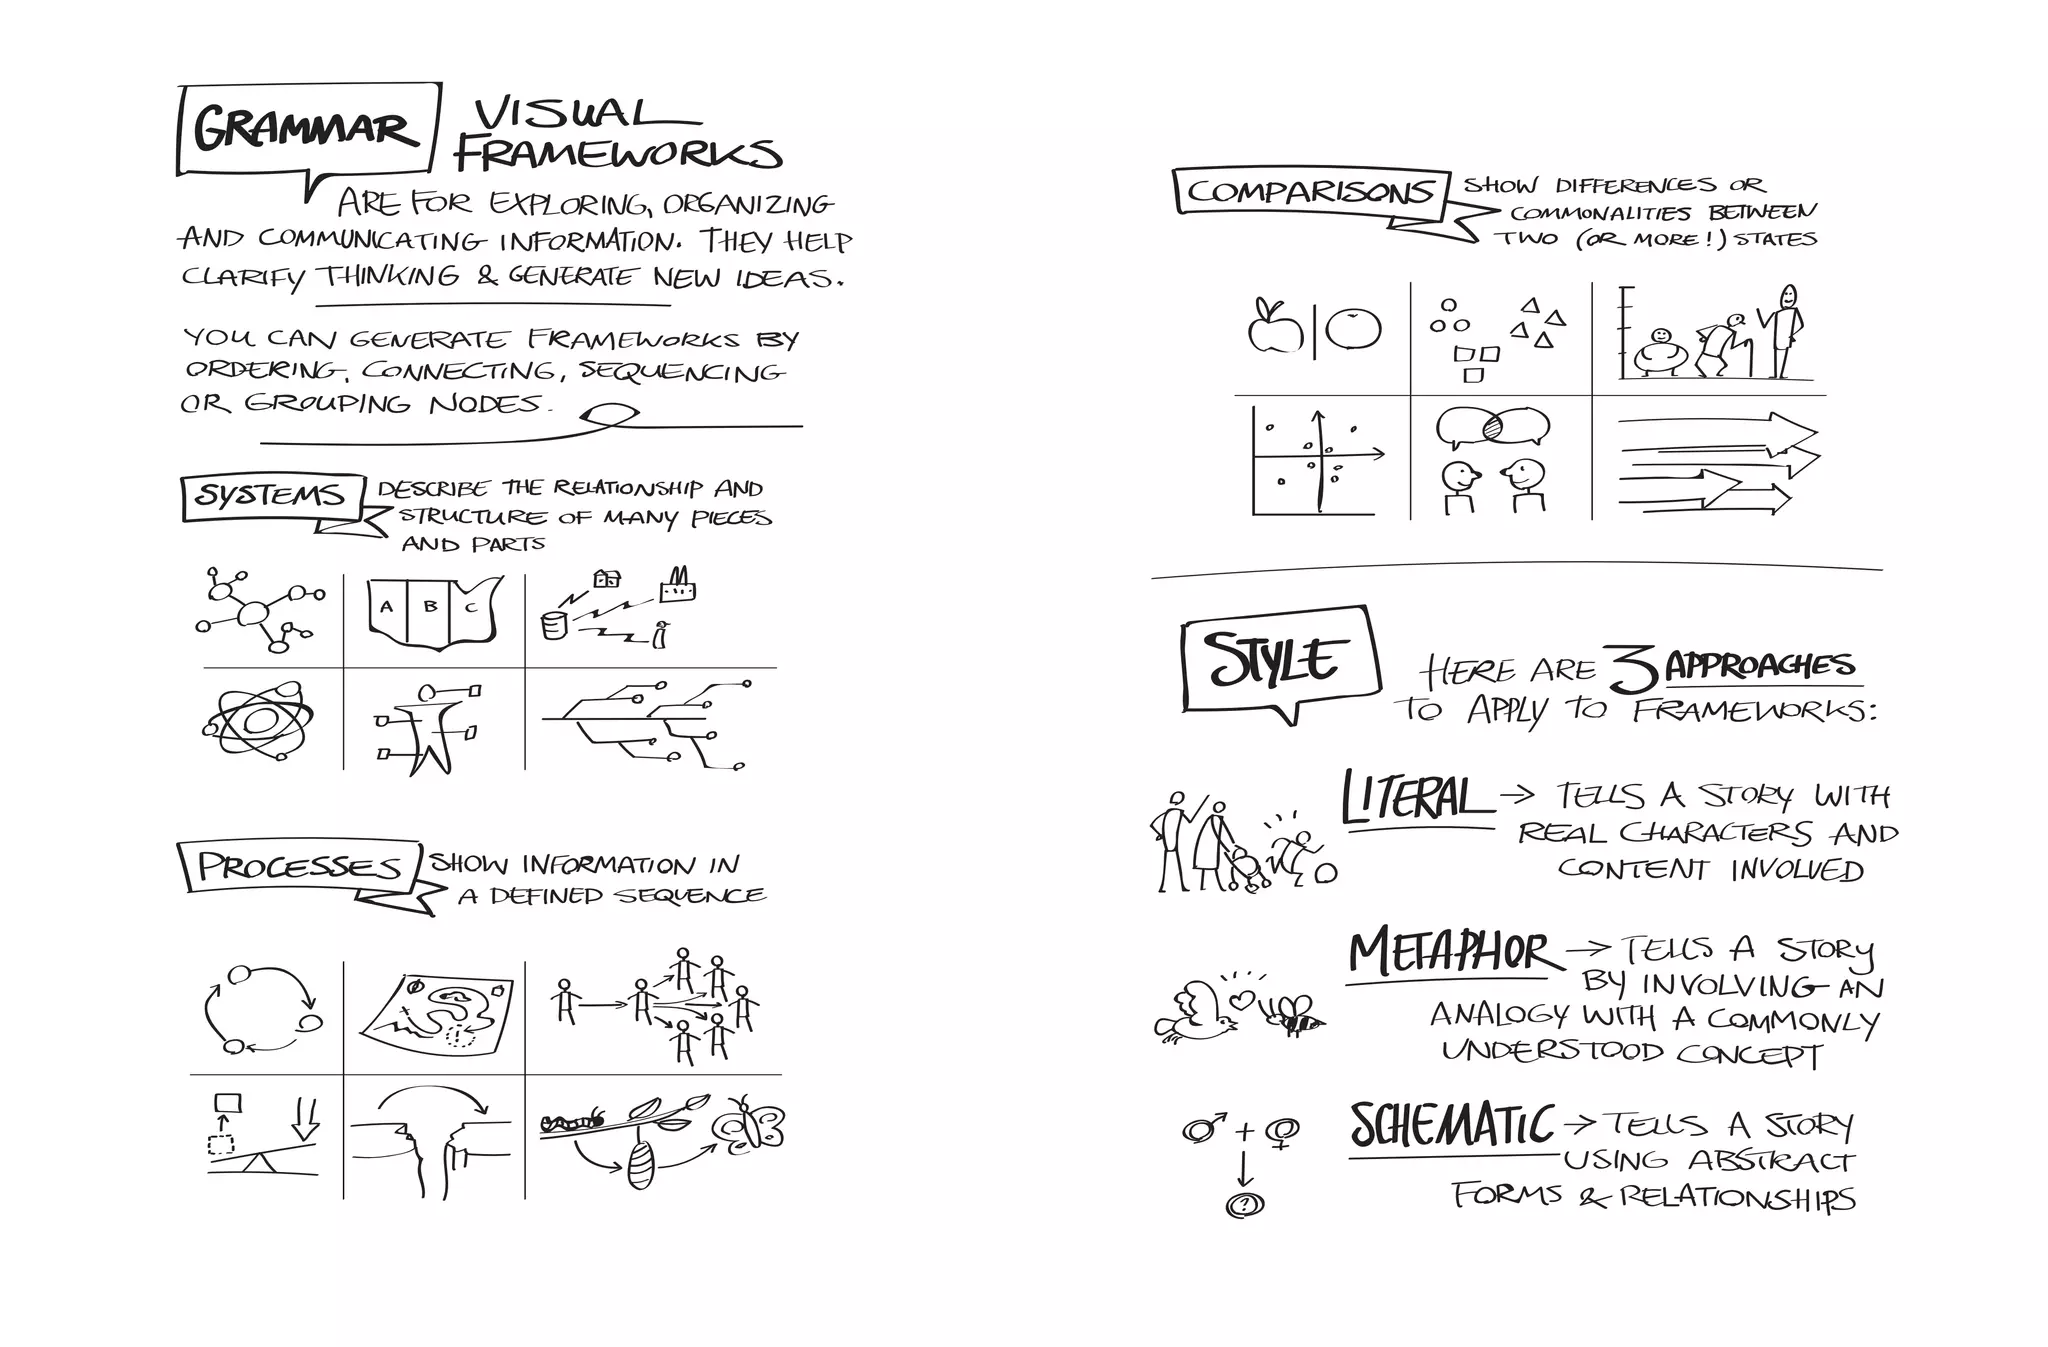 GRAMMAR
VISUAL
FRAMEWORKS
ARE FOR EXPLORING, ORGANIZING
AND COMMUNICATING INFORMATION. THEY HELP
CLARIFY THINKING & GENERATE NEW IDEAS.
YOU CAN GENERATE FRAMEWORKS BY
ORDERING, CONNECTING, SEQUENCING
OR GROUPING NODES.
SYSTEMS
DESCRIBE THE RELATIONSHIP AND
STRUCTURE OF MANY PIECES
AND PARTS
A B C
PROCESSES
SHOW INFORMATION IN
A DEFINED SEQUENCE
COMPARISONS
SHOW DIFFERENCES OR
COMMONALITIES BETWEEN
TWO (OR MORE!) STATES
STYLE
HERE ARE 3 APPROACHES
TO APPLY TO FRAMEWORKS:
LITERAL → TELLS A STORY WITH
REAL CHARACTERS AND
CONTENT INVOLVED
METAPHOR → TELLS A STORY
BY INVOLVING AN
ANALOGY WITH A COMMONLY
UNDERSTOOD CONCEPT
SCHEMATIC → TELLS A STORY
USING ABSTRACT
FORMS & RELATIONSHIPS
♂ + ♀
?